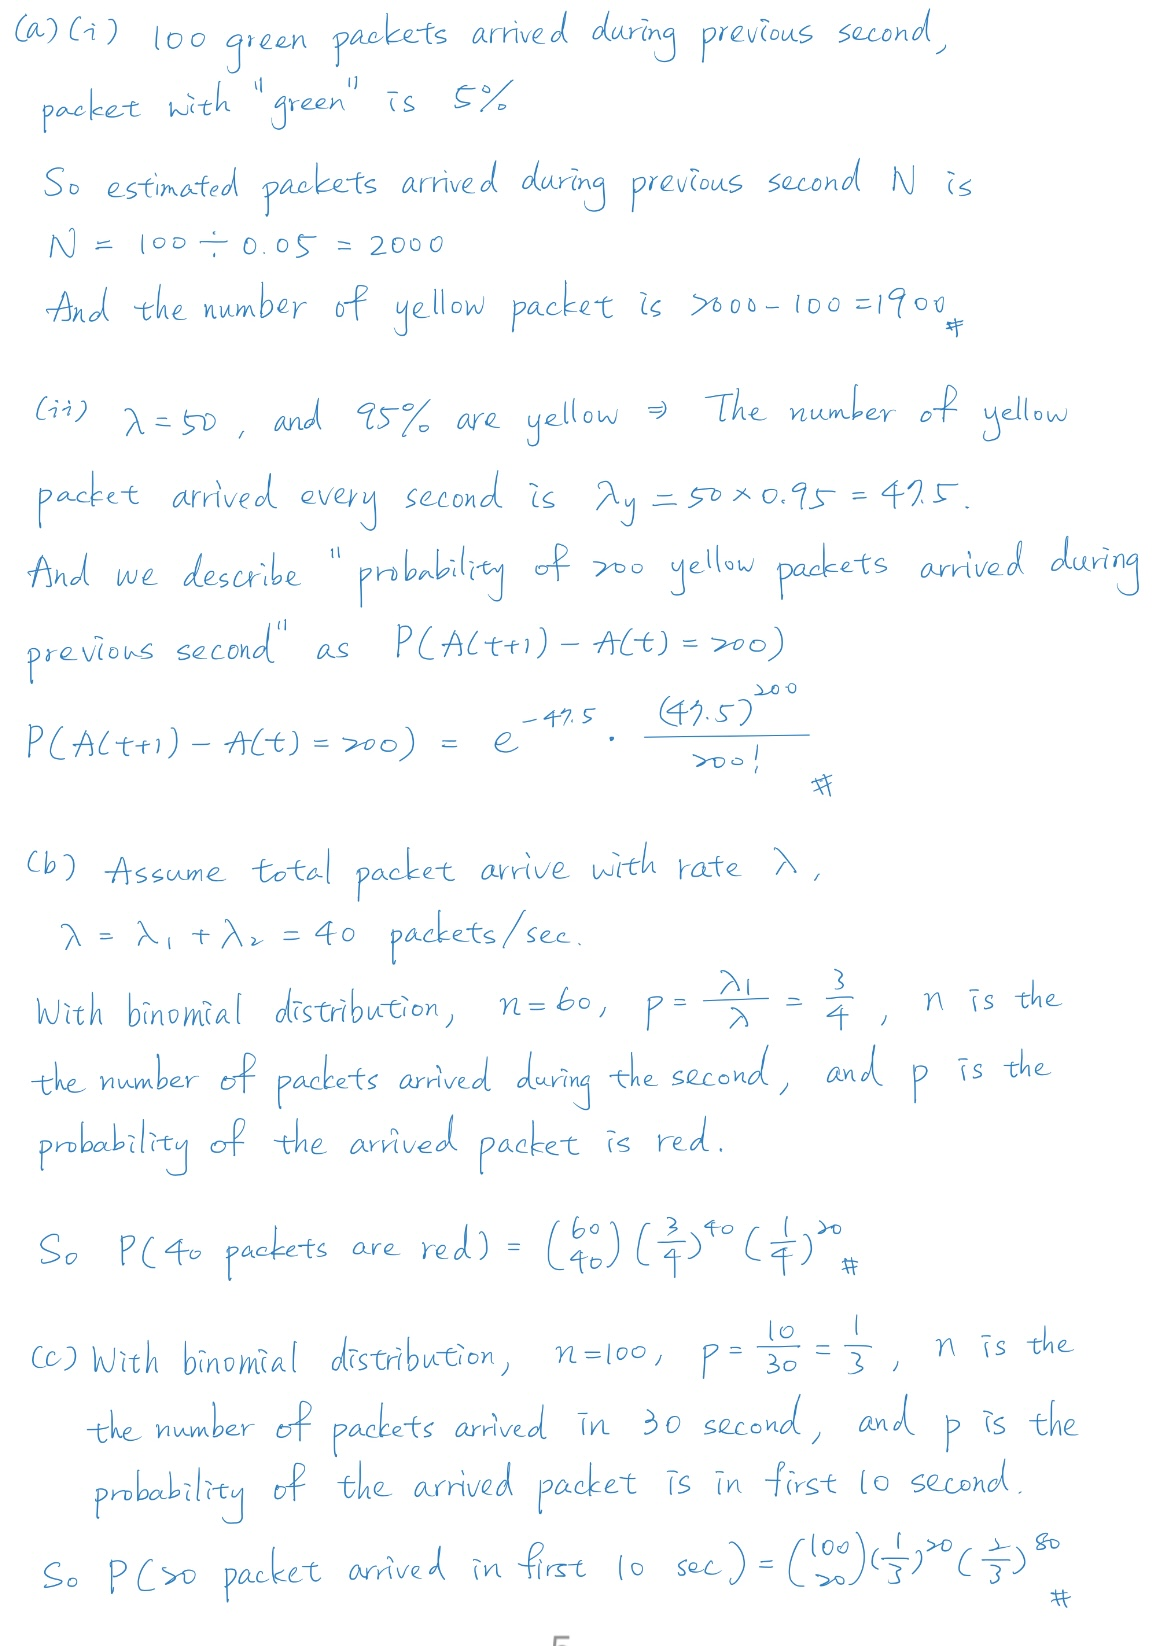 (a)(i) 100 green packets arrived during previous second,
packet with "green" is 5%
So estimated packets arrived during previous second N is
N = 100 ÷ 0.05 = 2000
And the number of yellow packet is 2000 - 100 = 1900 #
(ii) λ = 50, and 95% are yellow ⇒ The number of yellow
packet arrived every second is λy = 50 × 0.95 = 47.5.
And we describe "probability of 200 yellow packets arrived during
previous second" as P(A(t+1) - A(t) = 200)
P(A(t+1) - A(t) = 200) = e^{-47.5} · (47.5)^{200} / 200! #
(b) Assume total packet arrive with rate λ,
λ = λ₁ + λ₂ = 40 packets/sec.
With binomial distribution, n = 60, p = λ₁/λ = 3/4, n is the
the number of packets arrived during the second, and p is the
probability of the arrived packet is red.
So P(40 packets are red) = (60 40) (3/4)^{40} (1/4)^{20} #
(c) With binomial distribution, n=100, p = 10/30 = 1/3, n is the
the number of packets arrived in 30 second, and p is the
probability of the arrived packet is in first 10 second.
So P(20 packet arrived in first 10 sec) = (100 20) (1/3)^{20} (2/3)^{80} #